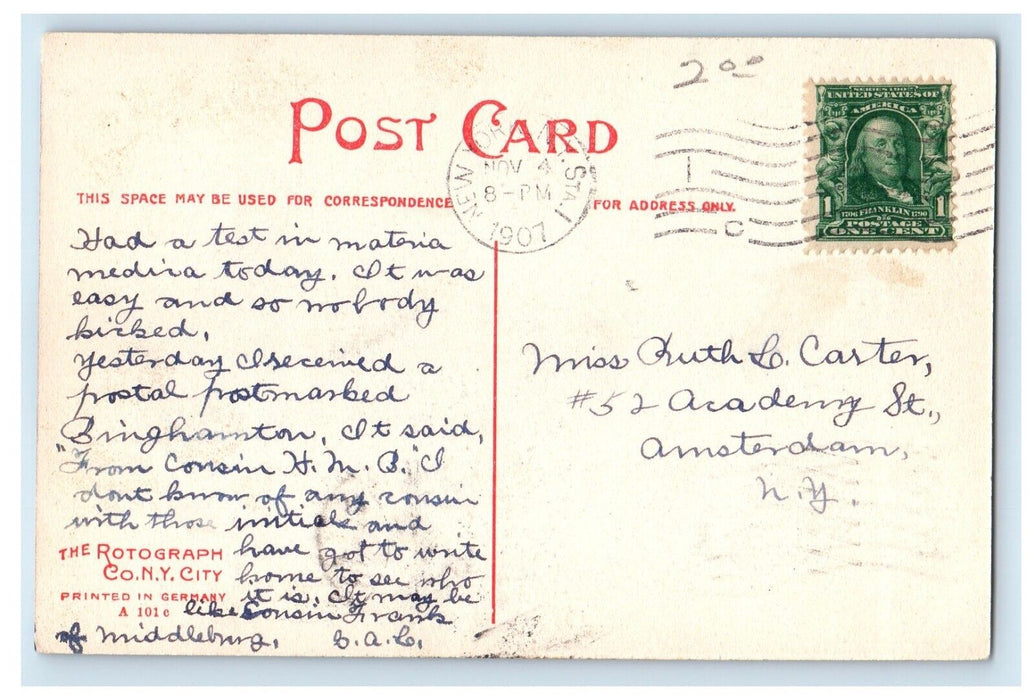 2 00
POST CARD
SERIES 1902
UNITED STATES OF
AMERICA
1 1706 FRANKLIN 1790 1
POSTAGE
ONE CENT
NEW YORK, STA
NOV 4
8-PM
1907
1
C
THIS SPACE MAY BE USED FOR CORRESPONDENCE
FOR ADDRESS ONLY.
Had a test in materia
medica today. It was
easy and so nobody
kicked.
Yesterday I received a
postal postmarked
Binghamton. It said,
"From Cousin H. M. B." I
dont know of any cousin
with those initials and
have got to write
home to see who
it is. It may be
like Cousin Frank
of Middleburg. S.A.C.
THE ROTOGRAPH
CO. N.Y. CITY
PRINTED IN GERMANY
A 101 c
Miss Ruth L. Carter,
#52 Academy St.,
Amsterdam,
N.Y.